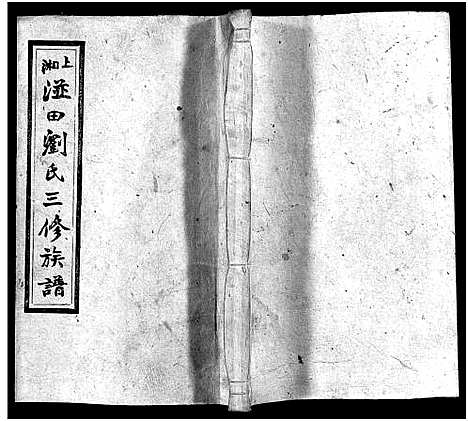 上湘
漄田劉氏三修族譜